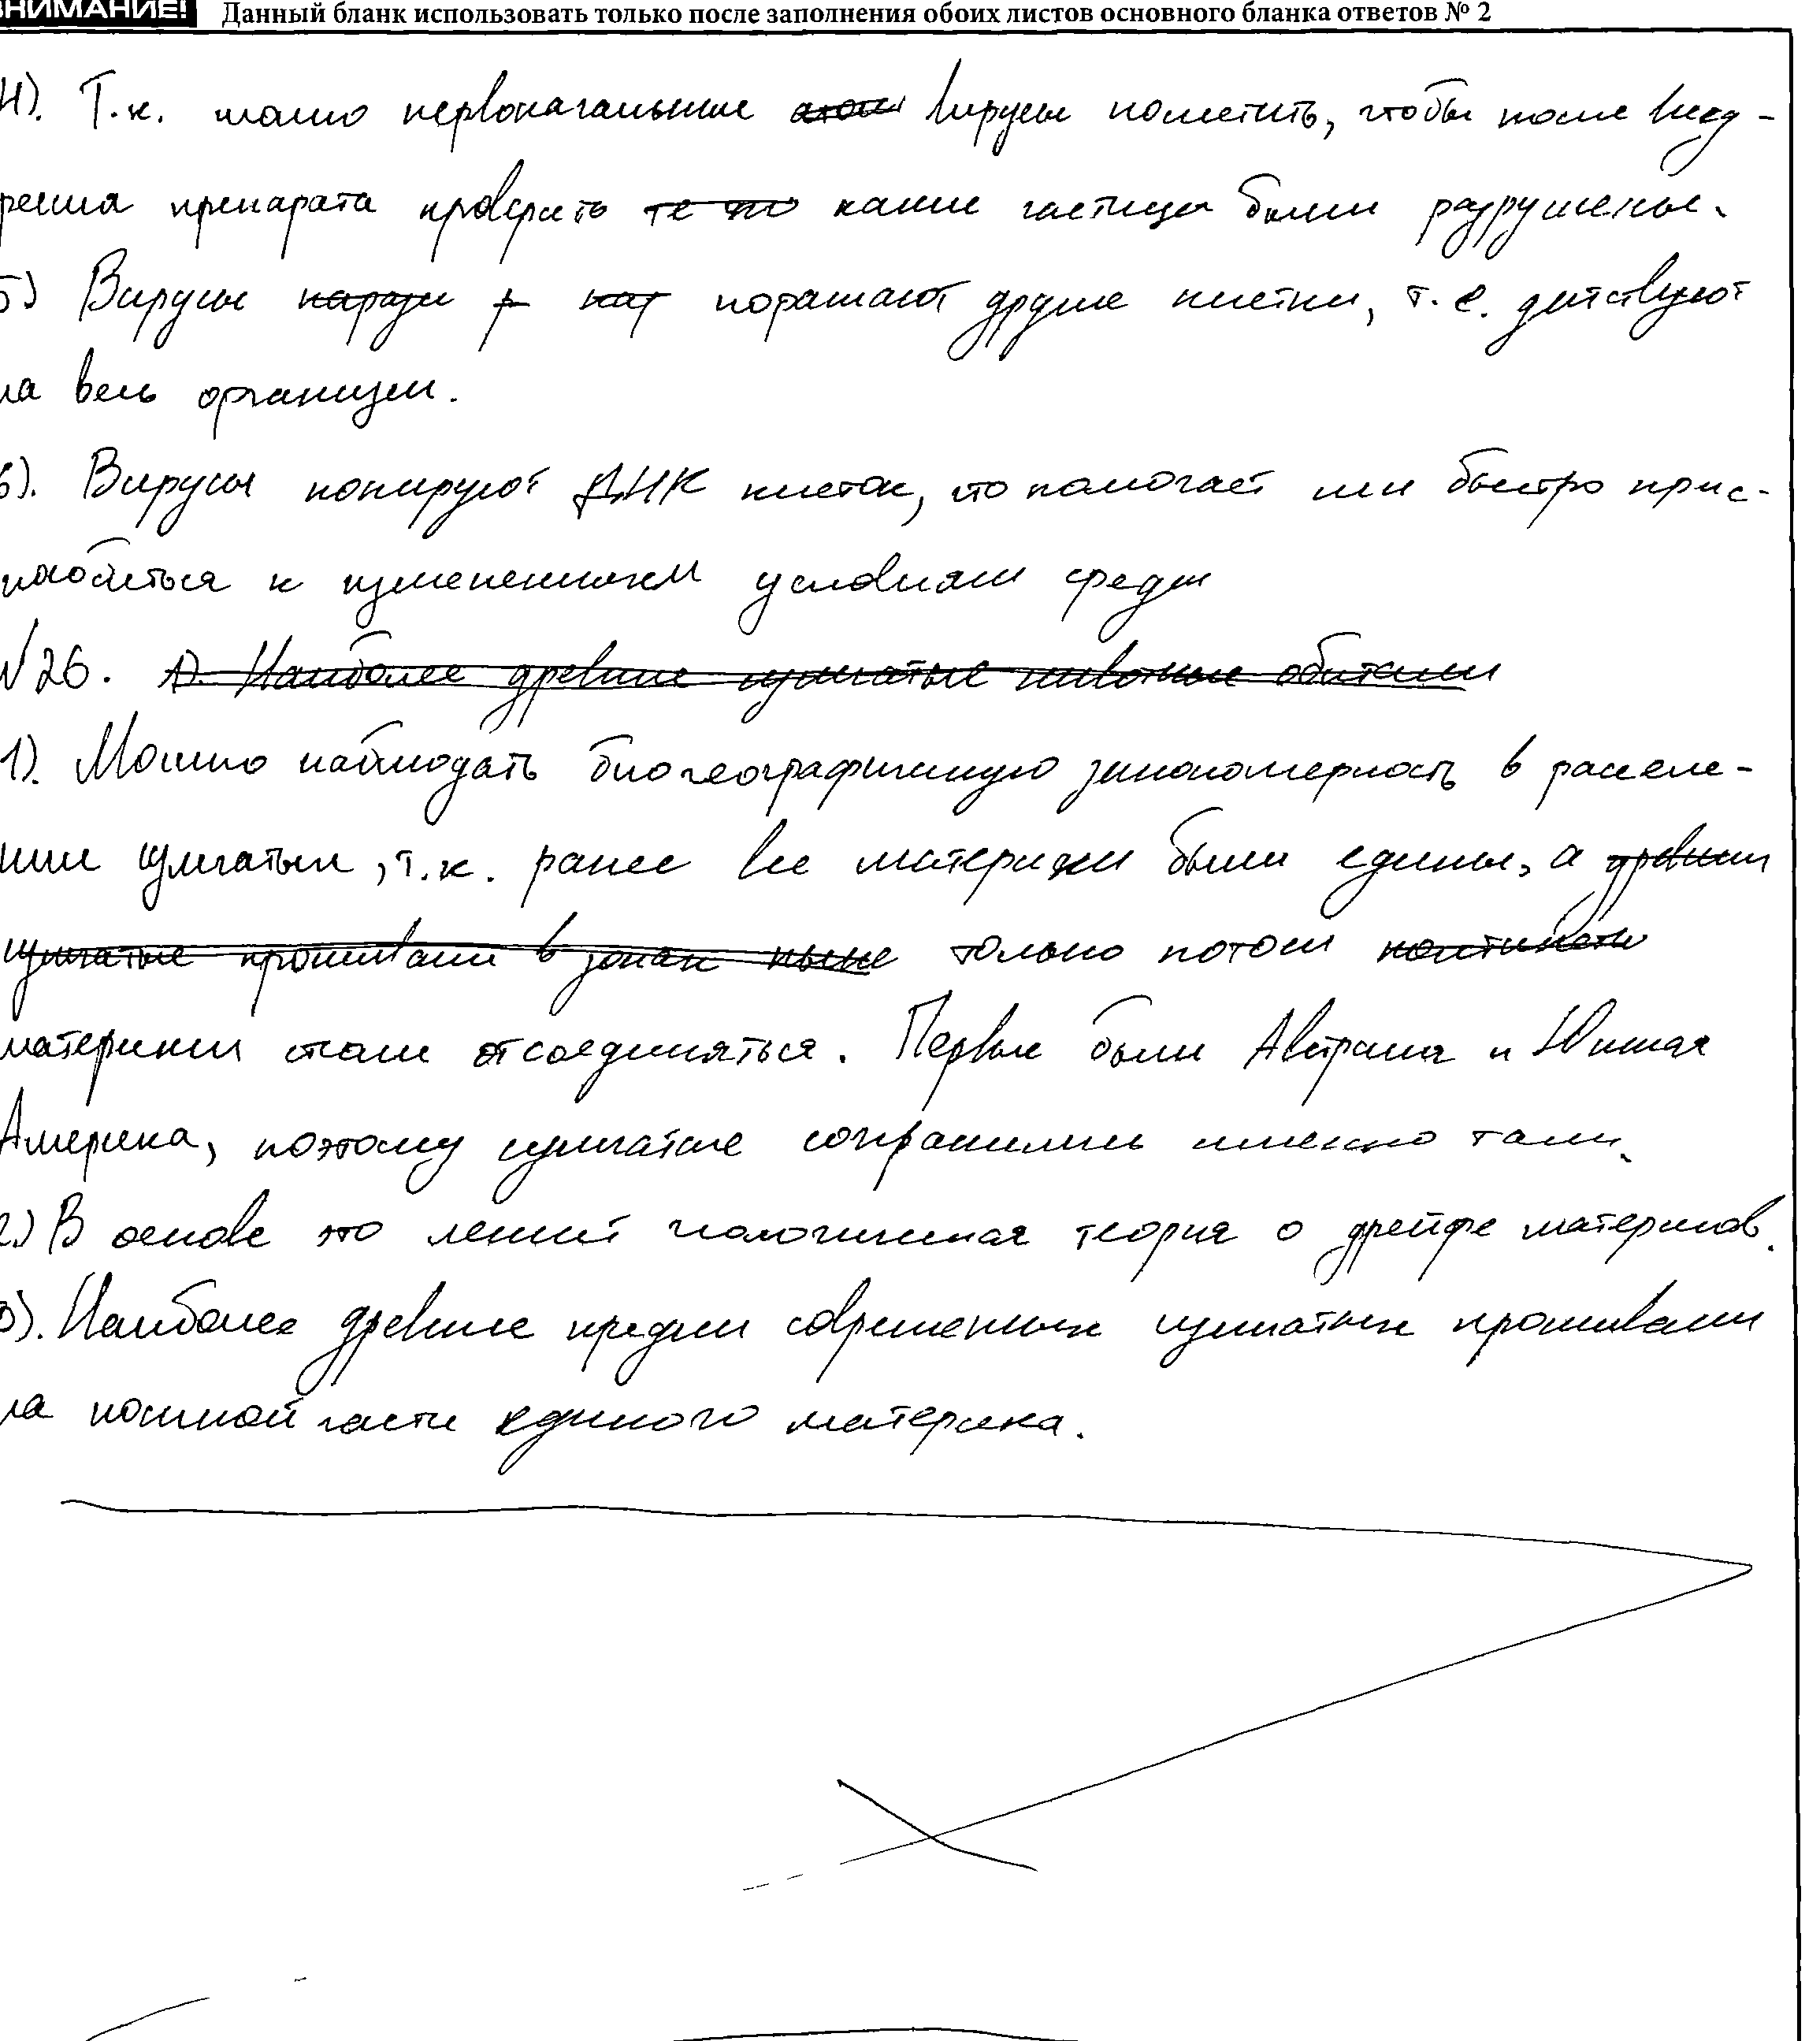 ВНИМАНИЕ! Данный бланк использовать только после заполнения обоих листов основного бланка ответов № 2
4). Т.к. можно первоначальные вирусы пометить, чтобы после внед-
рения препарата проверить те то какие частицы были разрушены.
5) Вирусы парази р пар поражают другие клетки, т.е. действуют
на весь организм.
6). Вирусы копируют ДНК клеток, что помогает им быстро прис-
пособиться к изменениям условиям среды
№26. 1). Наиболее древние сумчатые животные обитали
1). Можно наблюдать биогеографическую закономерность в расселе-
нии сумчатых, т.к. ранее все материки были едины, а древние
сумчатые проживали в зонах ныне только потом континенты
материки стали отсоединяться. Первые были Австралия и Южная
Америка, поэтому сумчатые сохранились именно там.
2.) В основе это лежит геологическая теория о дрейфе материков.
3). Наиболее древние предки современных сумчатых проживали
на южной части единого материка.